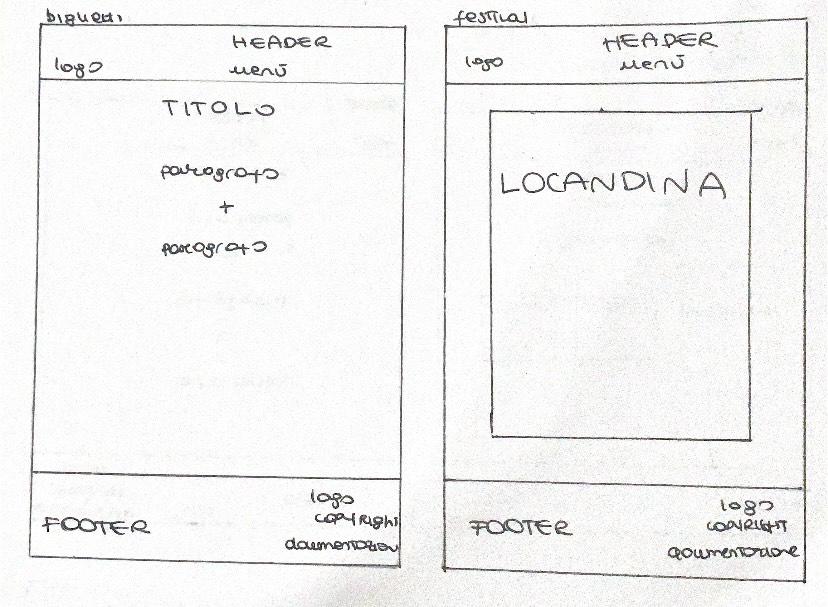 biglietti
HEADER
logo menù
TITOLO
paragrafo
+
paragrafo
FOOTER
logo
copyright
documentazion
festival
HEADER
logo menù
LOCANDINA
FOOTER
logo
COPYRIGHT
documentazione